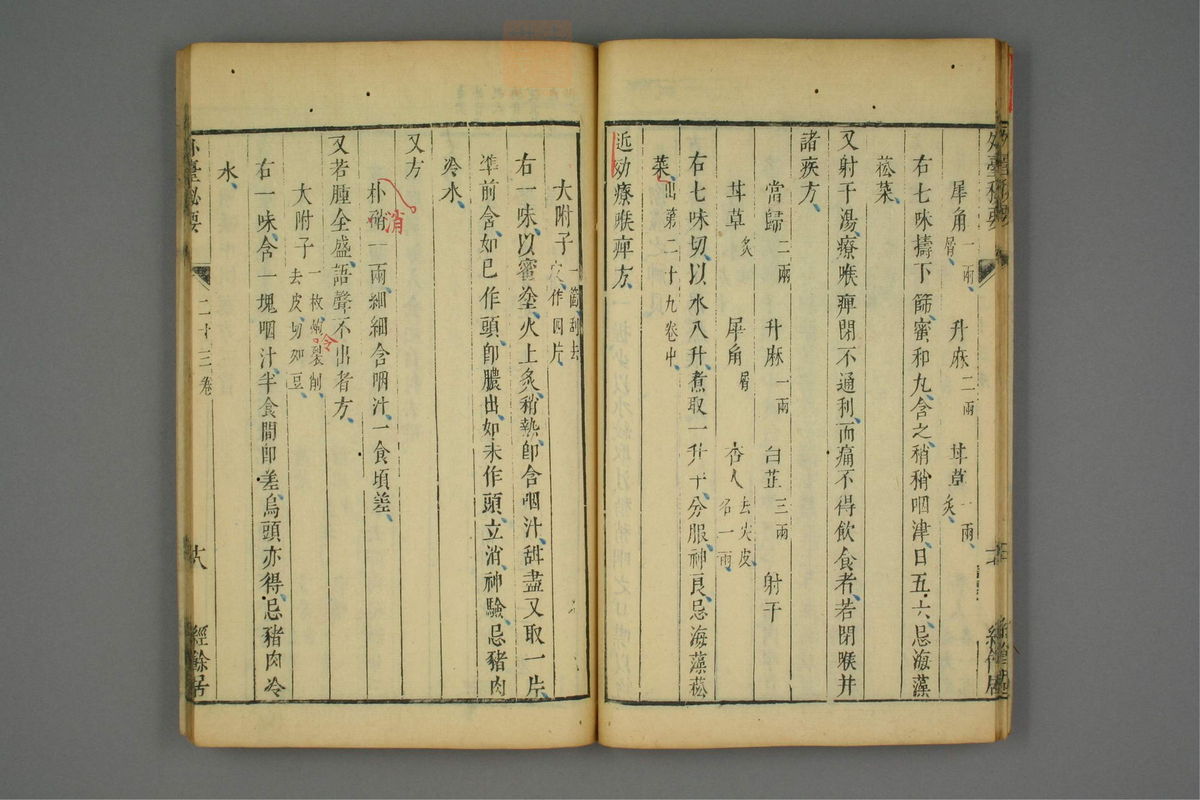 犀角一兩屑 升麻二兩 甘草一兩炙
右七味擣下篩蜜和丸含之稍稍咽津日五六忌海藻
菘菜
又射干湯療喉痹閉不通利而痛不得飲食者若閉喉并
諸疾方
當歸二兩 升麻一兩 白芷三兩 射干
甘草炙 犀角屑 杏人去尖皮各一兩
右七味切以水八升煮取一升半分服神良忌海藻菘
菜出第二十九卷中
近効療喉痹方
大附子一箇刮去皮作四片
右一味以蜜塗火上炙稍熱即含咽汁甜盡又取一片
準前含如已作頭即膿出如未作頭立消神驗忌豬肉
冷水
又方
朴硝一兩細細含咽汁一食頃差
消
又若腫全盛語聲不出者方
大附子一枚炮裂削去皮切如豆
令
右一味含一塊咽汁半食間即差烏頭亦得忌豬肉冷
水
外臺秘要 二十三卷 十八 經餘居